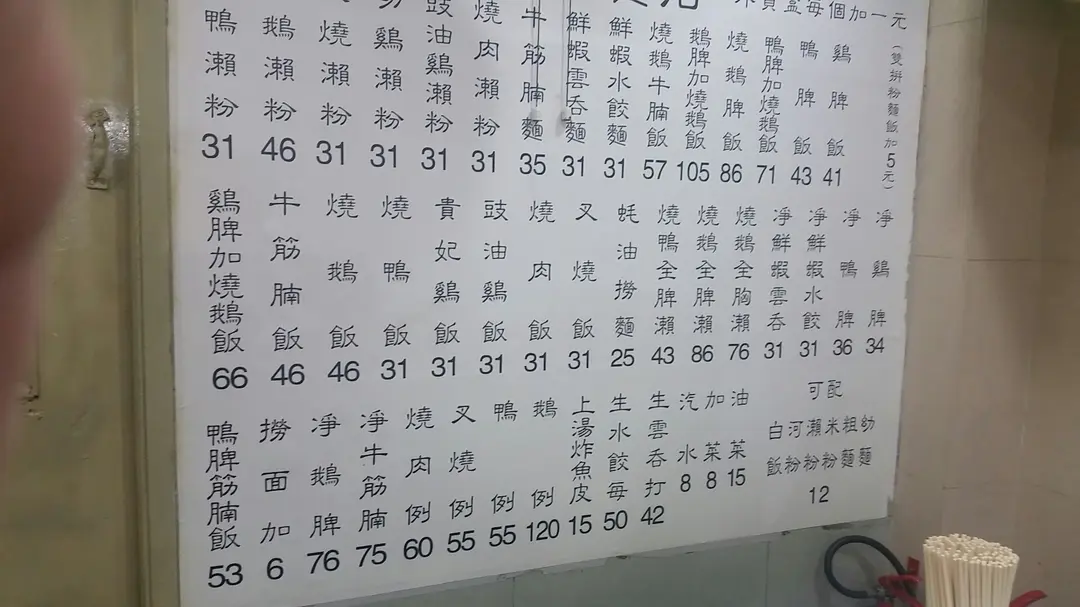 賣盒每個加一元
(雙拼粉麵飯加5元)
鴨瀨粉 31
鵝瀨粉 46
燒瀨粉 31
鷄瀨粉 31
豉油鷄瀨粉 31
燒肉瀨粉 31
牛筋腩麵 35
鮮蝦雲呑麵 31
鮮蝦水餃麵 31
燒鵝牛腩飯 57
鵝脾加燒鵝飯 105
燒鵝脾飯 86
鴨脾加燒鵝飯 71
鴨脾飯 43
鷄脾飯 41
鷄脾加燒鵝飯 66
牛筋腩飯 46
燒鵝飯 46
燒鴨飯 31
貴妃鷄飯 31
豉油鷄飯 31
燒肉飯 31
叉燒飯 31
蚝油撈麵 25
燒鴨全脾瀨 43
燒鵝全脾瀨 86
燒鵝全胸瀨 76
淨鮮蝦雲呑 31
淨鮮蝦水餃 31
淨鴨脾 36
淨鷄脾 34
鴨脾筋腩飯 53
撈面加 6
淨鵝脾 76
淨牛筋腩 75
燒肉例 60
叉燒例 55
鴨例 55
鵝例 120
上湯炸魚皮 15
生水餃每 50
生雲呑打 42
汽水 8
加菜 8
油菜 15
可配
白飯
河粉
瀨粉
米粉
粗麵
幼麵
12